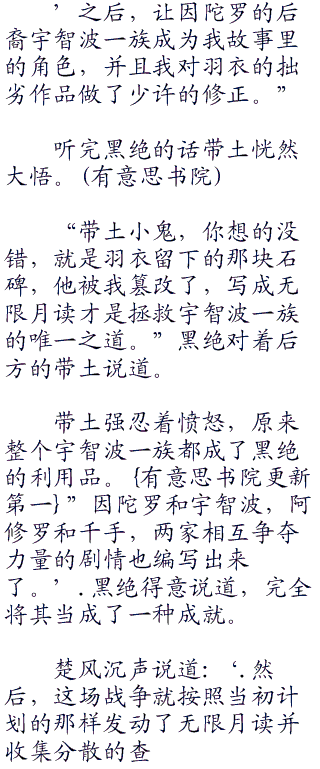 ’之后，让因陀罗的后
裔宇智波一族成为我故事里
的角色，并且我对羽衣的拙
劣作品做了少许的修正。”
听完黑绝的话带土恍然
大悟。(有意思书院)
“带土小鬼，你想的没
错，就是羽衣留下的那块石
碑，他被我篡改了，写成无
限月读才是拯救宇智波一族
的唯一之道。”黑绝对着后
方的带土说道。
带土强忍着愤怒，原来
整个宇智波一族都成了黑绝
的利用品。{有意思书院更新
第一}”因陀罗和宇智波，阿
修罗和千手，两家相互争夺
力量的剧情也编写出来
了。’.黑绝得意说道，完全
将其当成了一种成就。
楚风沉声说道：‘.然
后，这场战争就按照当初计
划的那样发动了无限月读并
收集分散的查